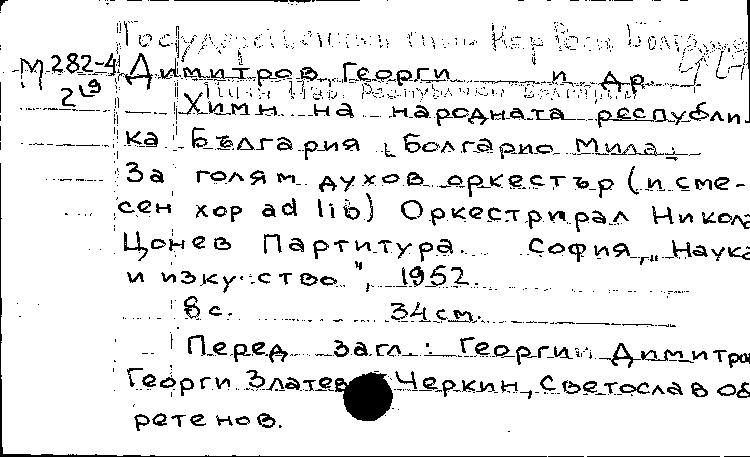 Государственный гимн Нар Респ Болгария
М 282-4 Димитров Георги и др.
2 19 Гимн Нар. Республики Болгарии
Химн на народната републи-
ка България [Болгарио Мила]
За голям духов оркестър (и сме-
сен хор ad lib) Оркестрирал Никола
Цонев Партитура. София, „Наука
и изкуство", 1952.
8 с. 34 см.
Перед загл.: Георгий Димитров
Георги Златев Черкин, Светослав Об
ретенов.